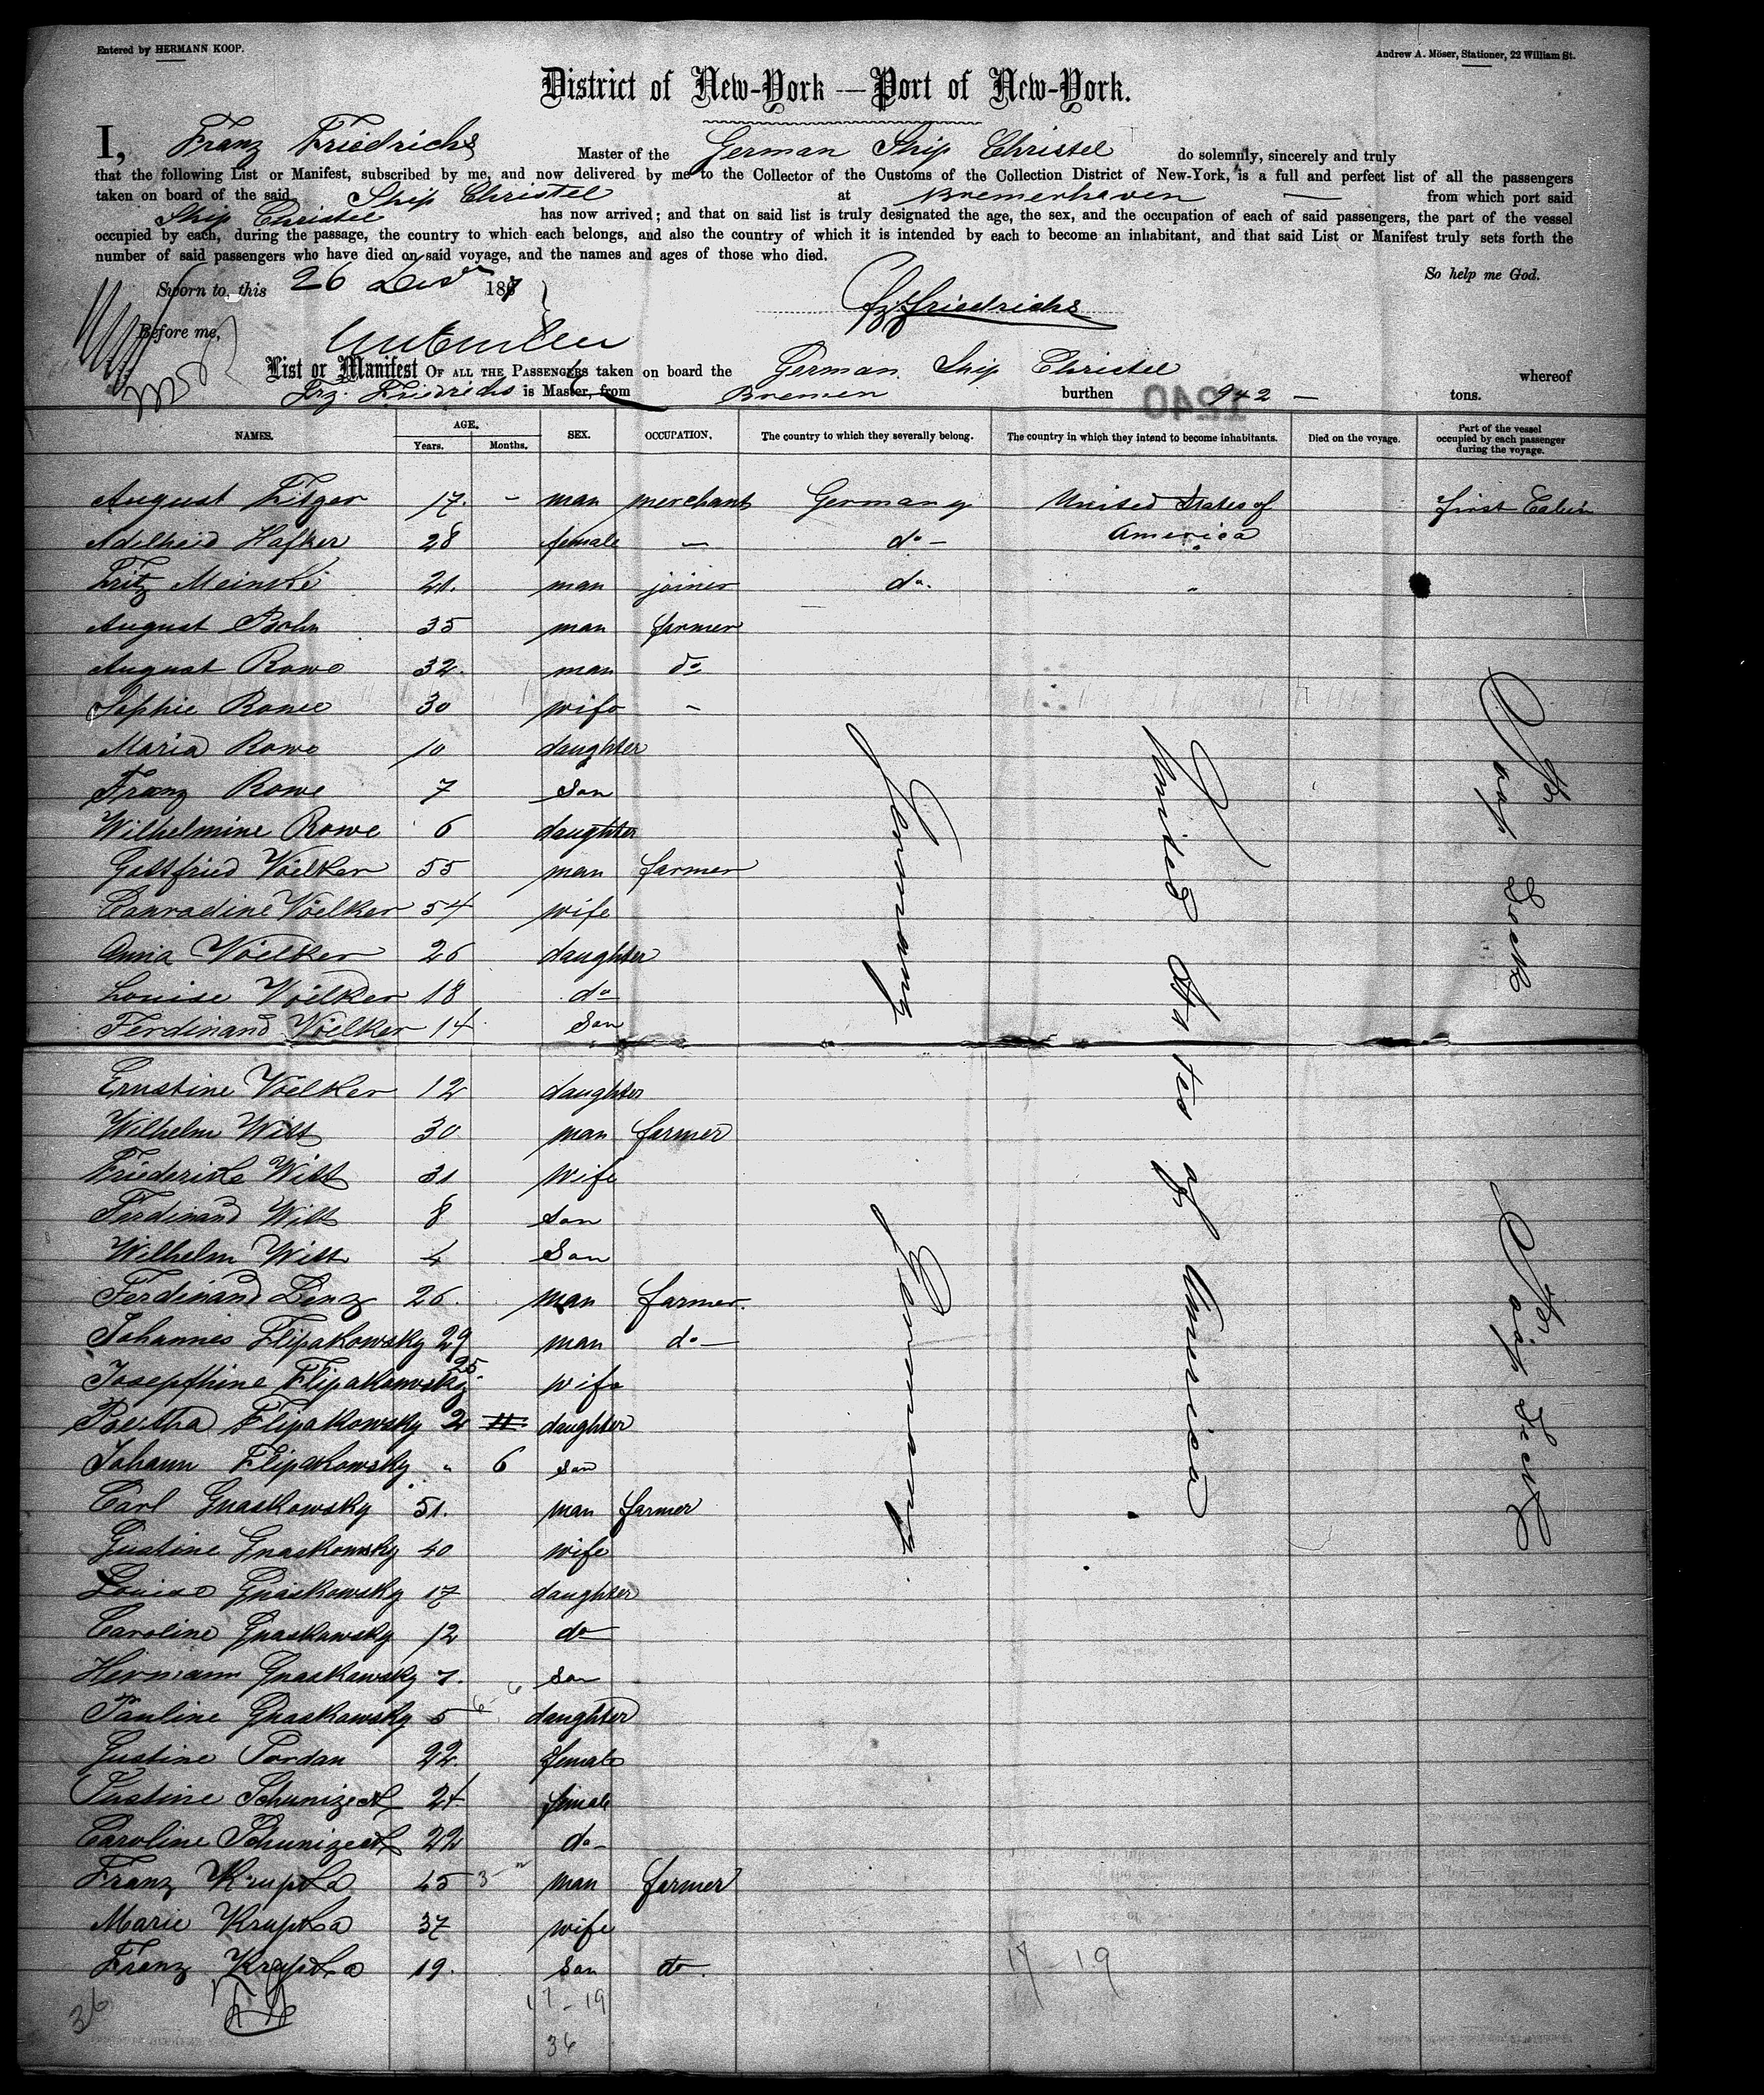 Entered by HERMANN KOOP.
Andrew A. Möser, Stationer, 22 William St.
District of New-York — Port of New-York.
I, Franz Friedrichs Master of the German Ship Christel do solemnly, sincerely and truly
that the following List or Manifest, subscribed by me, and now delivered by me to the Collector of the Customs of the Collection District of New-York, is a full and perfect list of all the passengers
taken on board of the said Ship Christel at Bremerhaven — from which port said
Ship Christel has now arrived; and that on said list is truly designated the age, the sex, and the occupation of each of said passengers, the part of the vessel
occupied by each, during the passage, the country to which each belongs, and also the country of which it is intended by each to become an inhabitant, and that said List or Manifest truly sets forth the
number of said passengers who have died on said voyage, and the names and ages of those who died.
So help me God.
Sworn to, this 26 187
Frz Friedrichs
Before me,
List or Manifest OF ALL THE PASSENGERS taken on board the German Ship Christel whereof
Frz. Friedrichs is Master, from Bremen burthen 942 — tons.
NAMES. AGE. Years. Months. SEX. OCCUPATION. The country to which they severally belong. The country in which they intend to become inhabitants. Died on the voyage. Part of the vessel occupied by each passenger during the voyage.
August Fitger 17. - man merchant Germany United States of first Cabin
Adelheid Hafker 28 female — do — America
Fritz Meinski 21. man joiner do. "
August Bohn 35 man farmer
August Rowe 32. man do
Sophie Rowe 30 wife -
Maria Rowe 10 daughter
Franz Rowe 7 son
Wilhelmine Rowe 6 daughter
Gottfried Voelker 55 man farmer
Conradine Voelker 54 wife
Anna Voelker 26 daughter
Louise Voelker 18 do
Ferdinand Voelker 14 son
Ernstine Voelker 12 daughter
Wilhelm Witt 30 man farmer
Friederike Witt 31 wife
Ferdinand Witt 8 son
Wilhelm Witt 4 son
Ferdinand Lenz 26. man farmer.
Johannes Flipakowsky 29 man do —
Josephine Flipakowsky 25. wife
Bertha Flipakowsky 2 11. daughter
Johann Flipakowsky " 6 son
Carl Gnaskowsky 51. man farmer
Gustine Gnaskowsky 40 wife
Louise Gnaskowsky 17 daughter
Caroline Gnaskowsky 12 do
Hermann Gnaskowsky 7. son
Pauline Gnaskowsky 5 daughter
Gustine Jordan 22. female
Justine 24 female
Caroline 22 do -
Franz Krupka 45 man farmer
Marie Krupka 37 wife
Franz Krupka 19. son do.
Germany
Germany
United States of America
Upper Deck
17 - 19
17 - 19
36
36